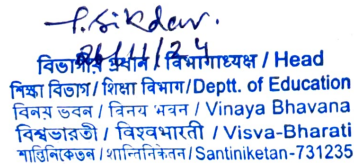 P. Sikdar.
26/11/24
বিভাগীয় প্রধান / विभागाध्यक्ष / Head
শিক্ষা বিভাগ / शिक्षा विभाग/Deptt. of Education
বিনয় ভবন / विनय भवन / Vinaya Bhavana
বিশ্বভারতী / विश्वभारती / Visva-Bharati
শান্তিনিকেতন / शान्तिनिकेतन / Santiniketan-731235